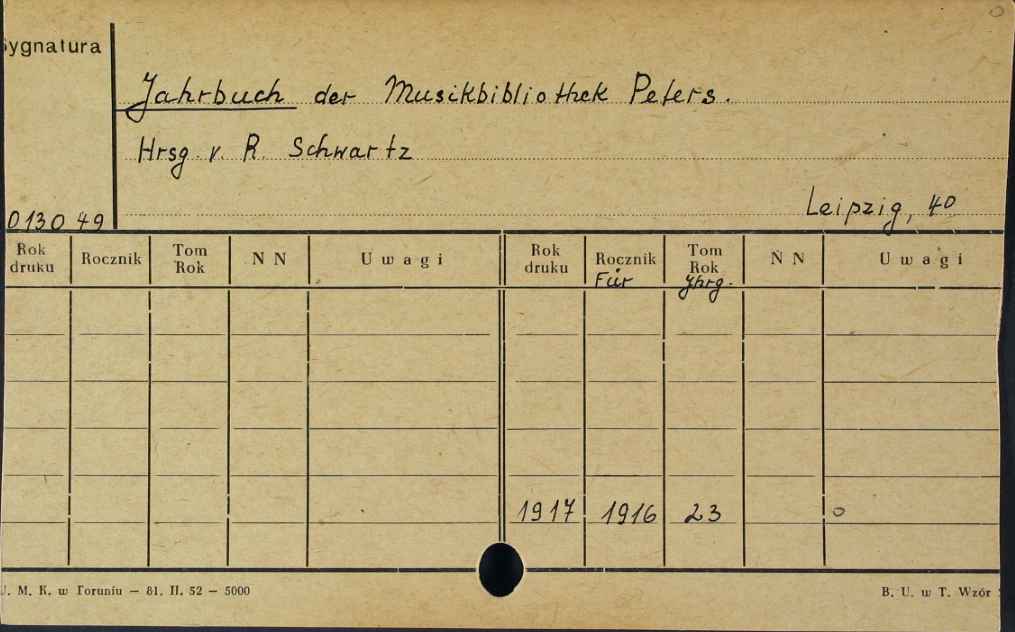 Sygnatura
Jahrbuch der Musikbibliothek Peters.
Hrsg. v. R. Schwartz
Leipzig, 40
013049
Rok druku Rocznik Tom Rok N N Uwagi Rok druku Rocznik Für Tom Rok Jhrg. N N Uwagi
1917 1916 23 o
U. M. K. w Toruniu — 81. II. 52 — 5000 B. U. w T. Wzór